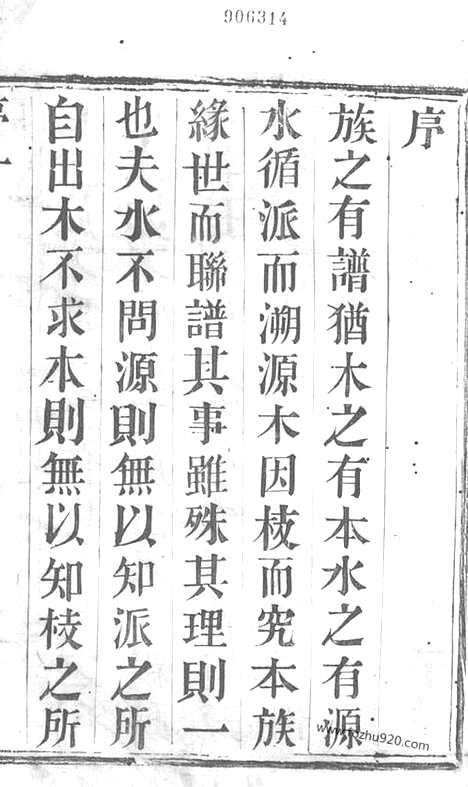 906314
序
族之有譜猶木之有本水之有源
水循派而溯源木因枝而究本族
緣世而聯譜其事雖殊其理則一
也夫水不問源則無以知派之所
自出木不求本則無以知枝之所
序一